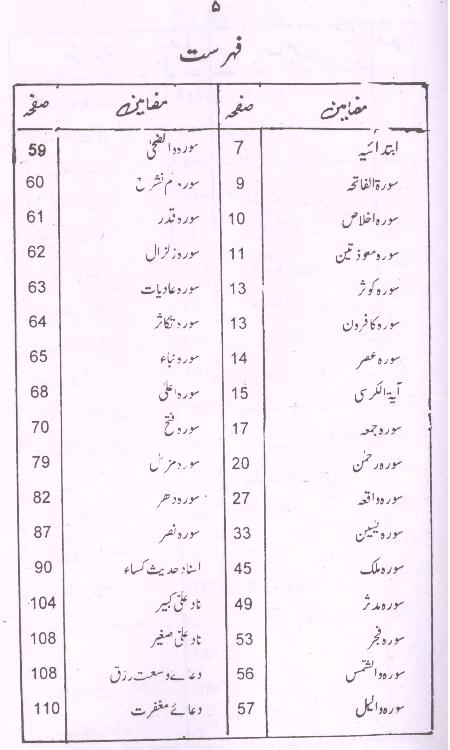 ۵
فہرست
مضامین صفحہ مضامین صفحہ
ابتدائیہ 7 سورہ والضحیٰ 59
سورۃ الفاتحہ 9 سورہ الم نشرح 60
سورہ اخلاص 10 سورہ قدر 61
سورہ معوذتین 11 سورہ زلزال 62
سورہ کوثر 13 سورہ عادیات 63
سورہ کافرون 13 سورہ تکاثر 64
سورہ عصر 14 سورہ نباء 65
آیۃ الکرسی 15 سورہ اعلیٰ 68
سورہ جمعہ 17 سورہ فتح 70
سورہ رحمٰن 20 سورہ مزمل 79
سورہ واقعہ 27 سورہ دھر 82
سورہ یٰسین 33 سورہ نصر 87
سورہ ملک 45 اسناد حدیث کساء 90
سورہ مدثر 49 ناد علیؑ کبیر 104
سورہ فجر 53 ناد علیؑ صغیر 108
سورہ والشمس 56 دعائے وسعت رزق 108
سورہ والیل 57 دعائے مغفرت 110